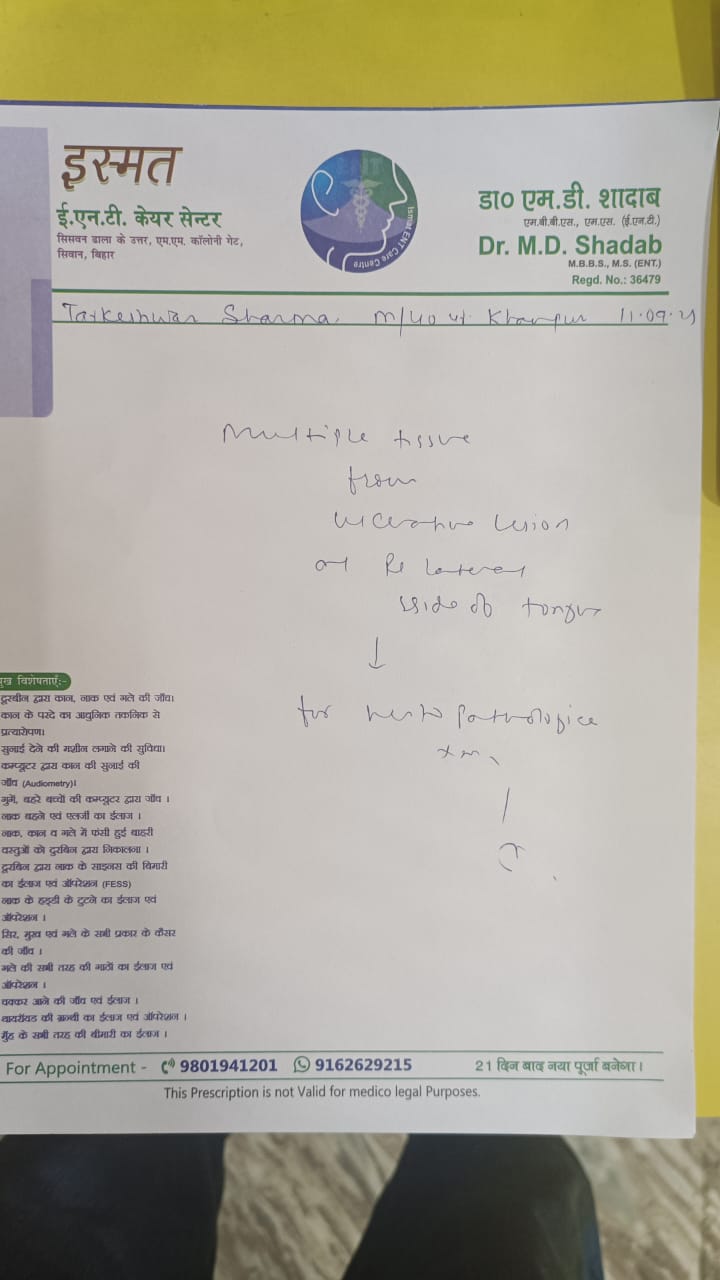 इस्मत
ई.एन.टी. केयर सेन्टर
सिसवन ढाला के उत्तर, एम.एम. कॉलोनी गेट,
सिवान, बिहार
ENT
Ismat ENT Care Centre
डा० एम.डी. शादाब
एम.बी.बी.एस., एम.एस. (ई.एन.टी.)
Dr. M.D. Shadab
M.B.B.S., M.S. (ENT.)
Regd. No.: 36479
Tarkeshwar Sharma M/40 Khanpur 11.09.
Multiple tissue
from
ulcerative lesion
lateral
side of tongue
↓
for histopathological
मुख विशेषताएँ:-
दूरबीन द्वारा कान, नाक एवं गले की जाँच।
कान के परदे का आधुनिक तकनिक से
प्रत्यारोपण।
सुनाई देने की मशीन लगाने की सुविधा।
कम्प्यूटर द्वारा कान की सुनाई की
जाँच (Audiometry)।
गुमें, बहरे बच्चों की कम्प्यूटर द्वारा जाँच ।
नाक बहने एवं एलर्जी का ईलाज ।
नाक, कान व गले में फंसी हुई बाहरी
वस्तुओं को दुरबिन द्वारा निकालना ।
दूरबिन द्वारा नाक के साइनस की बिमारी
का ईलाज एवं ऑपरेशन (FESS)
नाक के हड्डी के टुटने का ईलाज एवं
ऑपरेशन ।
सिर, मुख एवं गले के सभी प्रकार के कैंसर
की जाँच ।
गले की सभी तरह की गाठों का ईलाज एवं
ऑपरेशन ।
चक्कर आने की जाँच एवं ईलाज ।
थायरॉयड की ग्रन्थी का ईलाज एवं ऑपरेशन ।
मुँह के सभी तरह की बीमारी का ईलाज ।
For Appointment - 9801941201 9162629215
21 दिन बाद नया पूर्जा बनेगा।
This Prescription is not Valid for medico legal Purposes.